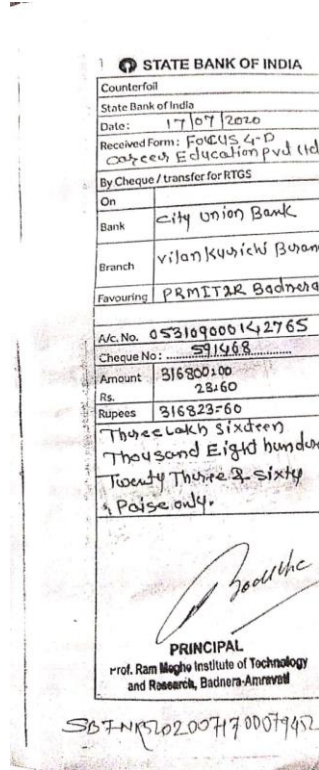 STATE BANK OF INDIA
Counterfoil
State Bank of India
Date: 17/07/2020
Received Form: FOCUS 4-D
career Education pvd ltd
By Cheque / transfer for RTGS
On
Bank City Union Bank
Branch
Favouring PRMIT&R Badnera
A/c. No. 053109000142765
Cheque No: 591468
Amount 316800=00
Rs. 23=60
Rupees 316823=60
Three Lakh Sixteen
Thousand Eight hundre
Twenty Three & Sixty
Paise only.
PRINCIPAL
Prof. Ram Meghe Institute of Technology
and Research, Badnera-Amravati